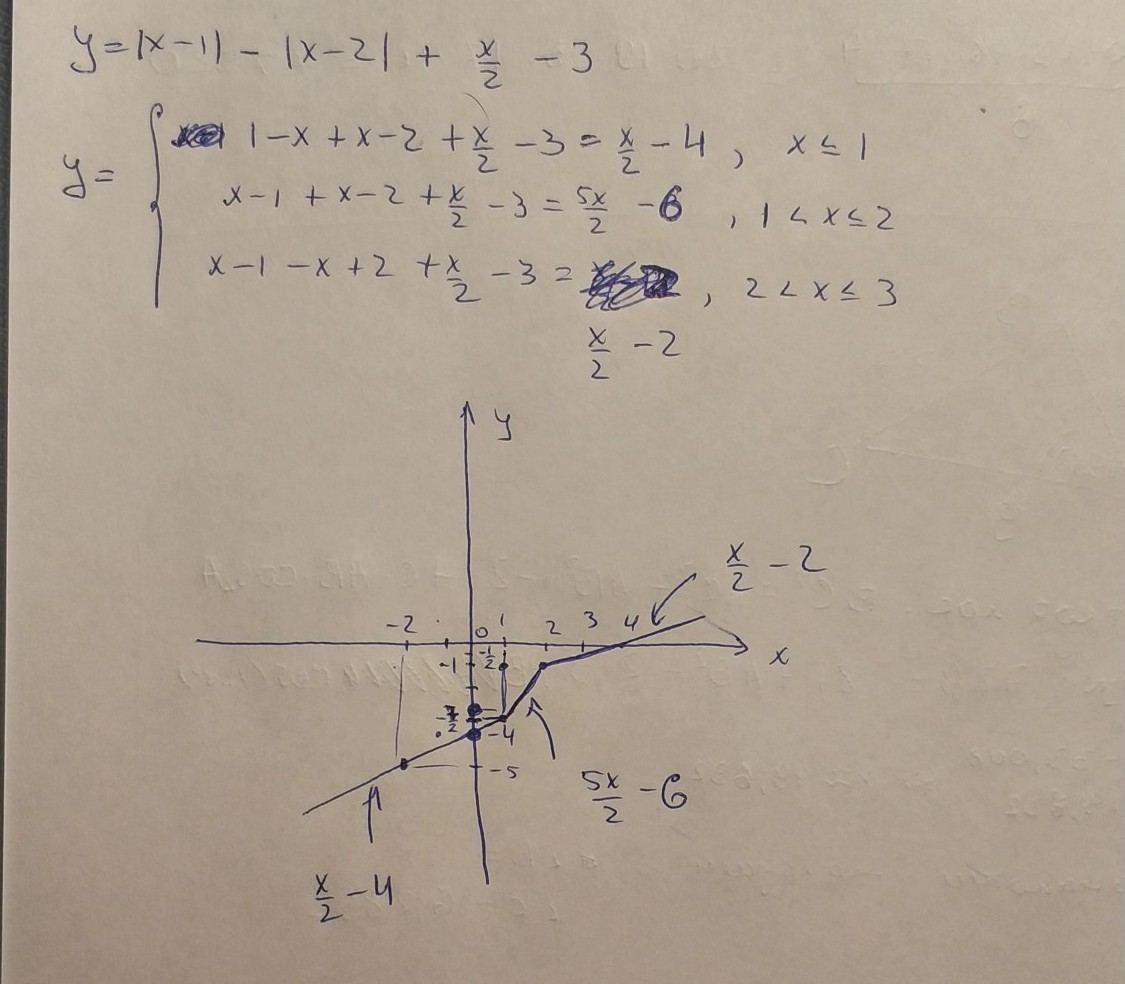 y = |x-1| - |x-2| + x/2 - 3
y =
1-x + x-2 + x/2 - 3 = x/2 - 4 , x ≤ 1
x-1 + x-2 + x/2 - 3 = 5x/2 - 6 , 1 < x ≤ 2
x-1 -x+2 + x/2 - 3 = , 2 < x ≤ 3
x/2 - 2
y
x/2 - 2
-2 0 1 2 3 4
x
-1 -1/2
-7/2
-4
-5
5x/2 - 6
x/2 - 4